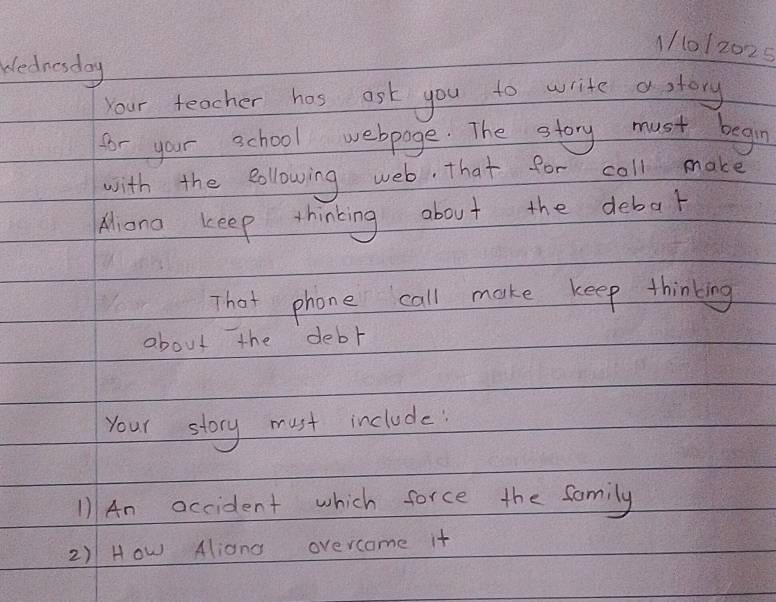 1/10/2025
Wednesday
Your teacher has ask you to write a story
for your school webpage. The story must begin
with the following web. That for call make
Aliana keep thinking about the debat
That phone call make keep thinking
about the debt
Your story must include:
1) An accident which force the family
2) How Aliana overcame it